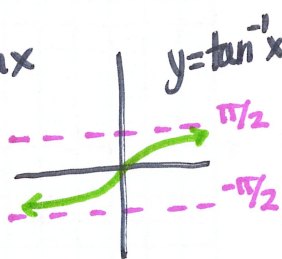 y=tan⁻¹x
π/2
-π/2